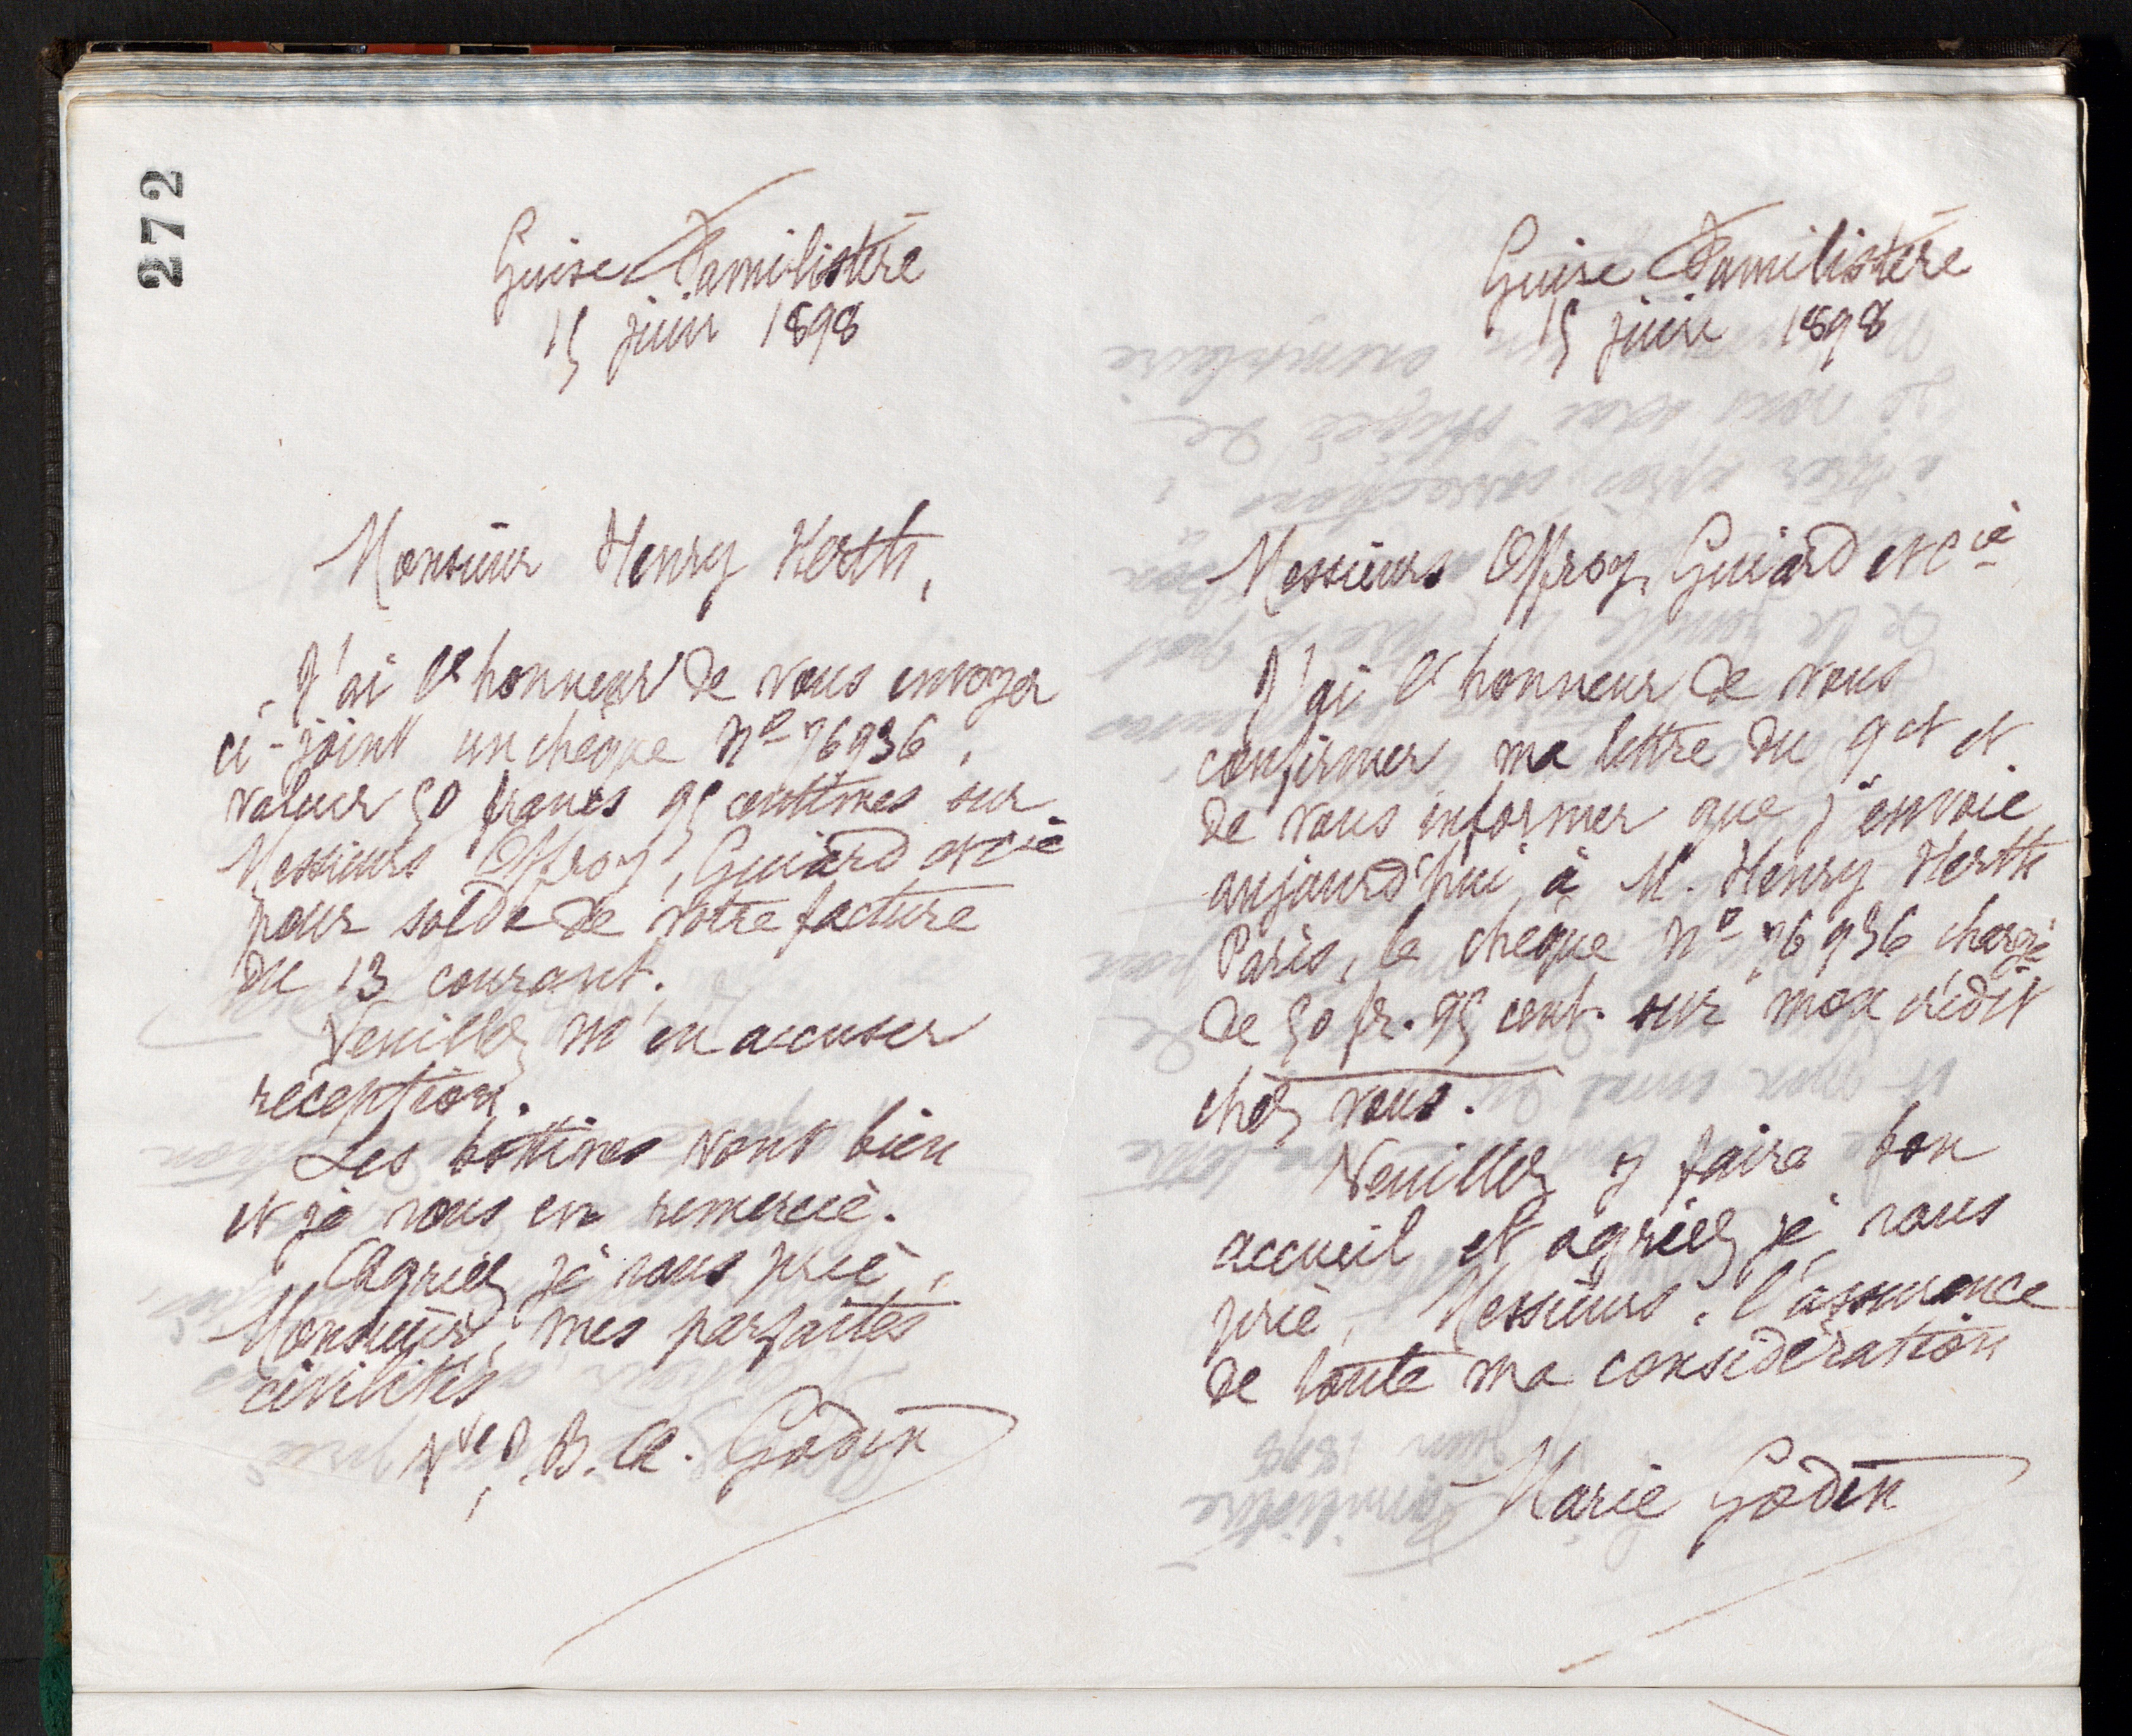 272
Guise Familistère
15 juin 1898
Monsieur Henry Kerth,
J'ai l'honneur de vous envoyer
ci-joint un chèque No 76936,
valeur 50 francs 95 centimes sur
Messieurs Offroy, Guiard et Cie
pour solde de votre facture
du 13 courant.
Veuillez m'en accuser
réception.
Les bottines vont bien
et je vous en remercie.
Agréez je vous prie,
Monsieur, mes parfaites
civilités
Vve J. B. A. Godin
Guise Familistère
15 juin 1898
Messieurs Offroy, Guiard et Cie
J'ai l'honneur de vous
confirmer ma lettre du 9 ct et
de vous informer que j'envoie
aujourd'hui à M. Henry Kerth
Paris, le chèque No 76936 chargé
de 50 fr. 95 cent. sur mon crédit
chez vous.
Veuillez y faire bon
accueil et agréez je vous
prie, Messieurs, l'assurance
de toute ma considération
Marie Godin